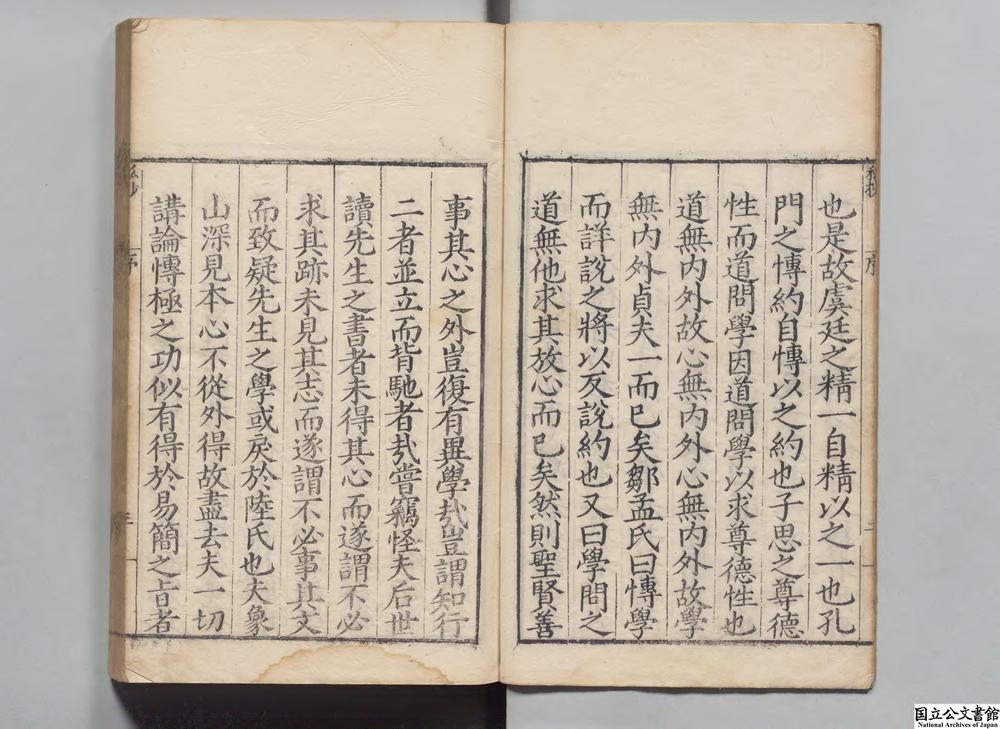 也是故虞廷之精一自精以之一也孔
門之愽約自愽以之約也子思之尊德
性而道問學因道問學以求尊德性也
道無内外故心無内外心無内外故學
無内外貞夫一而已矣鄒孟氏曰愽學
而詳說之將以反說約也又曰學問之
道無他求其放心而已矣然則聖賢善
事其心之外豈復有異學㢤豈謂知行
二者並立而背馳者㢤嘗竊怪夫后世
讀先生之書者未得其心而遂謂不必
求其跡未見其志而遂謂不必事其文
而致疑先生之學或戾於陸氏也夫象
山深見本心不從外得故盡去夫一切
講論愽極之功似有得於易簡之旨者
序
二
序
三
国立公文書館
National Archives of Japan